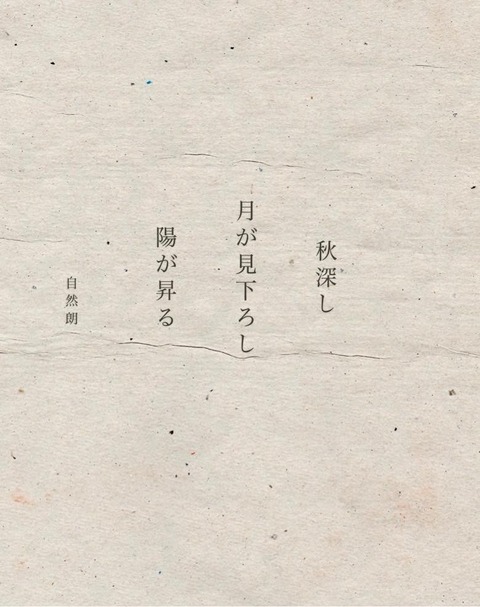 秋深し
月が見下ろし
陽が昇る
自然朗